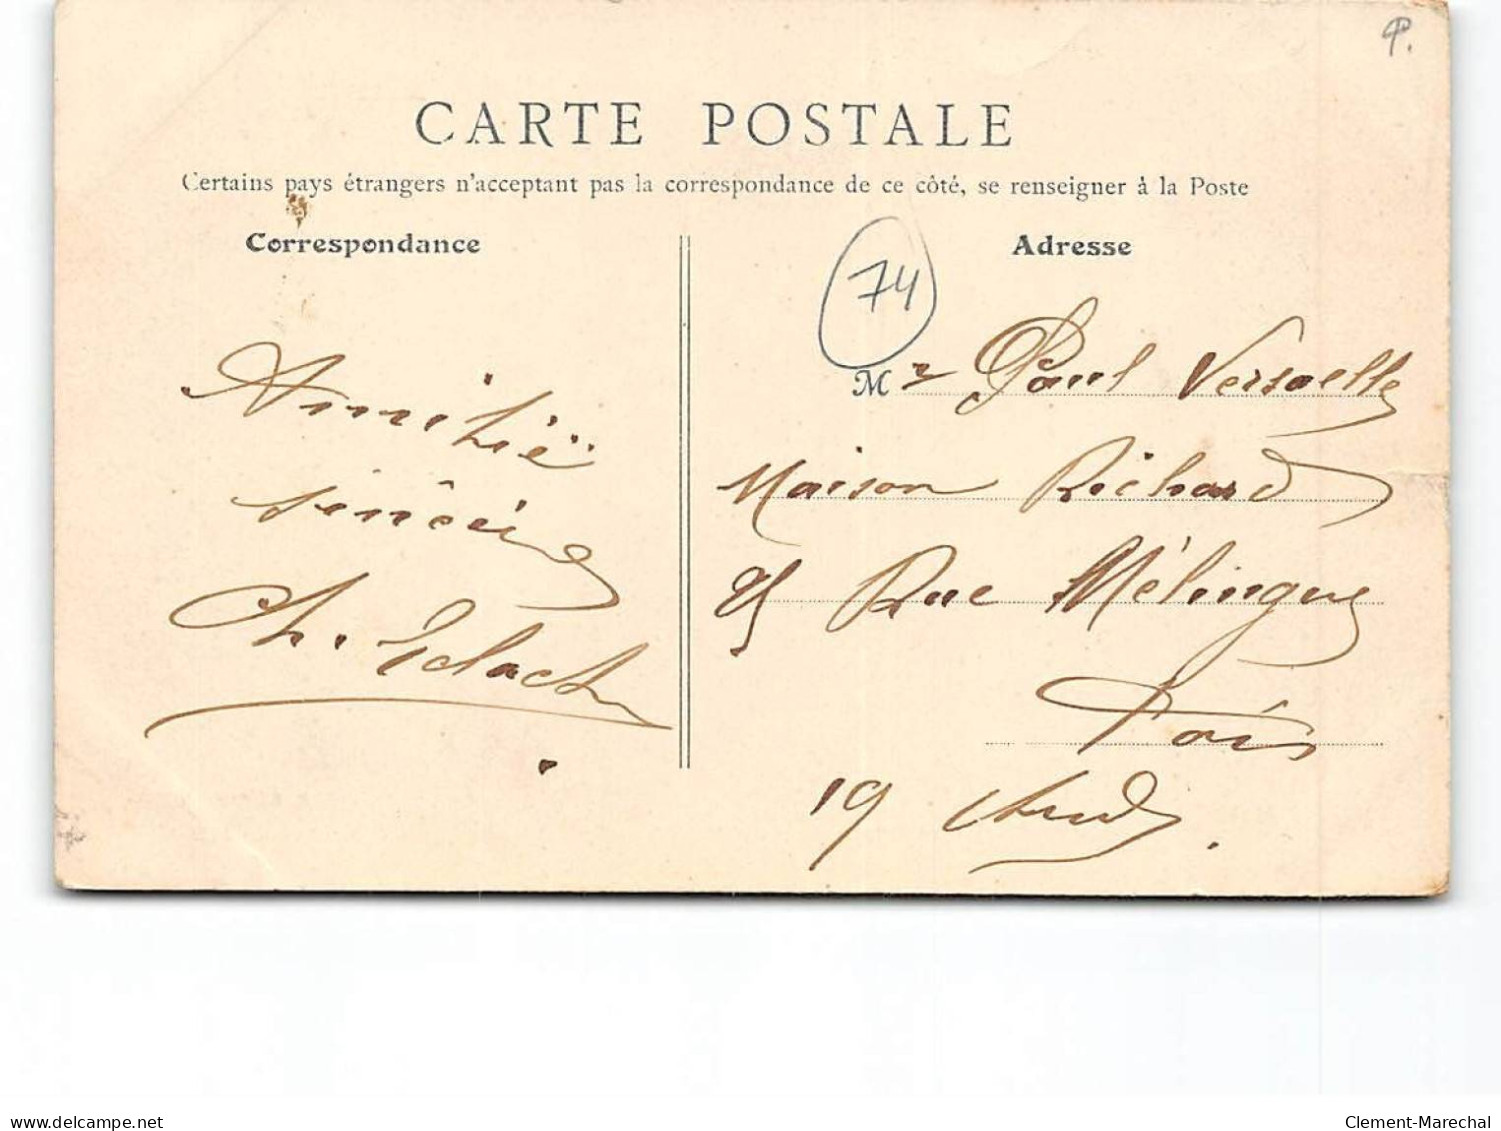 CARTE POSTALE
Certains pays étrangers n'acceptant pas la correspondance de ce côté, se renseigner à la Poste
Correspondance
Adresse
74
Mr Paul Versaelle
Maison Richard
25 Rue Mélingue
Paris
19 Arrd.
Amitié
sincère
Ch.
delcampe.net
Clement-Marechal